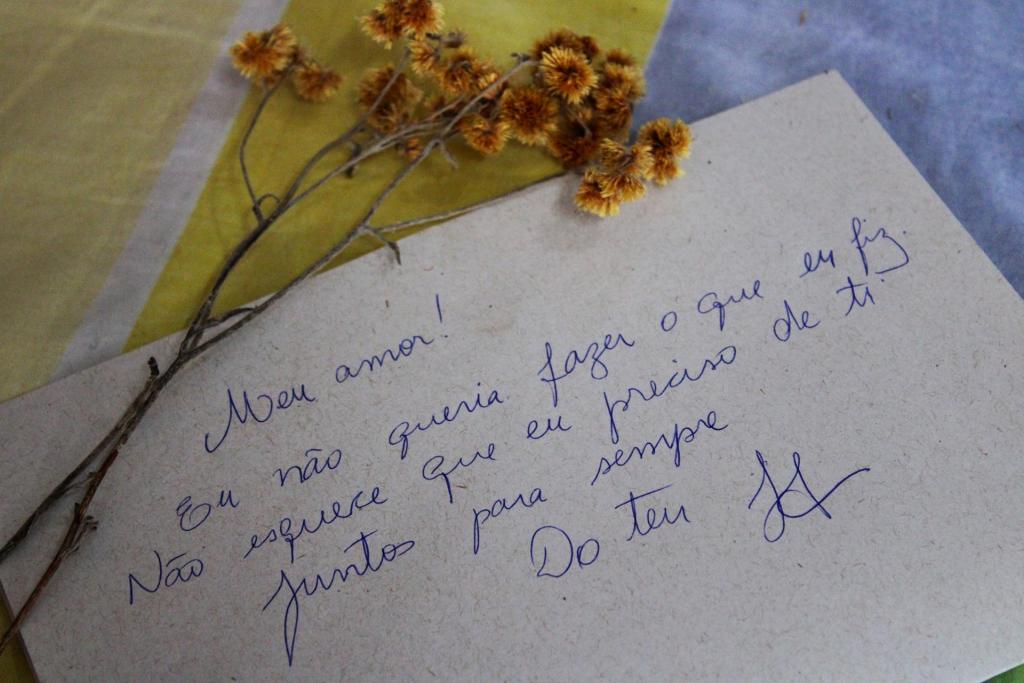 Meu amor!
Eu não queria fazer o que eu fiz.
Não esquece que eu preciso de ti
Juntos para sempre
Do teu